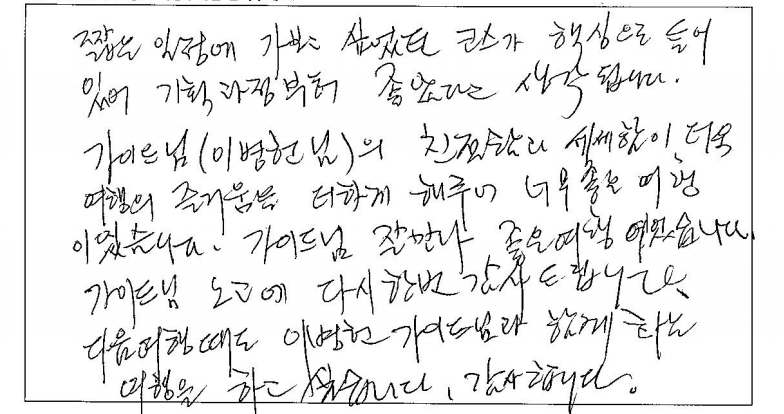 짧은 일정에 가보고 싶었던 코스가 핵심으로 들어
있어 기획과정부터 좋았다고 생각 됩니다.
가이드님(이병헌님)의 친절함과 세세함이 더욱
여행의 즐거움을 더하게 해주어 너무좋은 여행
이었습니다. 가이드님 잘만나 좋은여행 이었습니다.
가이드님 노고에 다시한번 감사드립니다.
다음여행때도 이병헌 가이드님과 함께 하는
여행을 하고 싶습니다. 감사합니다.